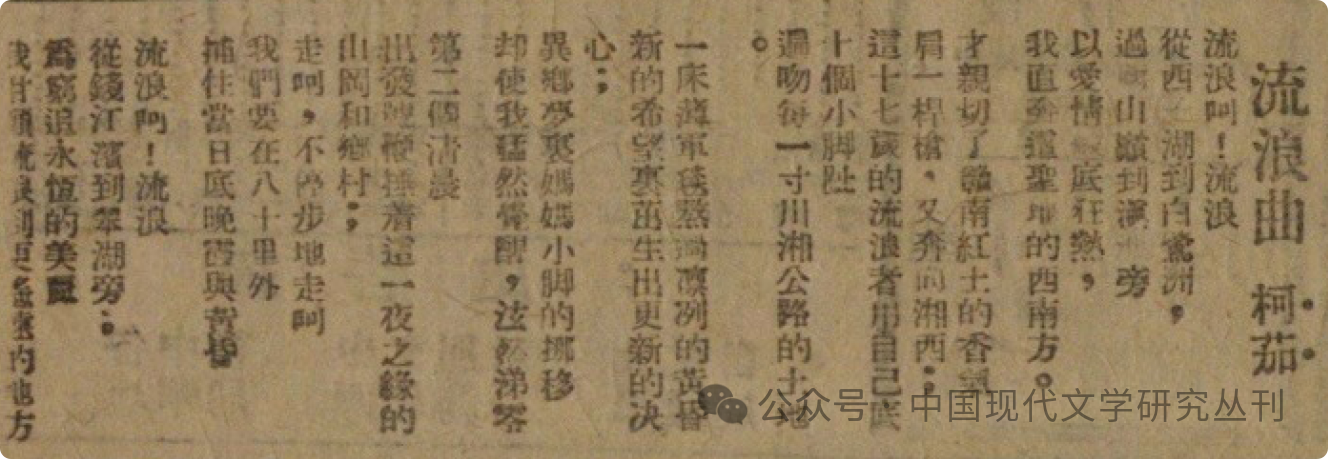 流浪曲 柯茄
流浪呵！流浪
從西 湖到白鷺洲，
過 山嶺到滇 旁
以愛情 底狂熱，
我直奔這聖地的西南方。
才親切了 南紅土的香
肩一桿槍，又奔向湘西；
這十七歲的流浪者用自己底
十個小脚趾
遍吻每一寸川湘公路的土地
。
一床薄軍毯熬過凛冽的黃昏
新的希望裏茁生出更新的决
心；
異鄉夢裏媽媽小脚的挪移
却使我猛然覺醒，泫然涕零
第二個清晨
出發 鞭捶着這一夜之緣的
山岡和鄉村；
走呵，不停步地走呵
我們要在八十里外
捕住當日底晚霞與黃昏
流浪呵！流浪
從錢江濱到翠湖旁；
爲窮追永恆的美麗
我甘願流浪到更 遠的地方
公众号 中国现代文学研究丛刊